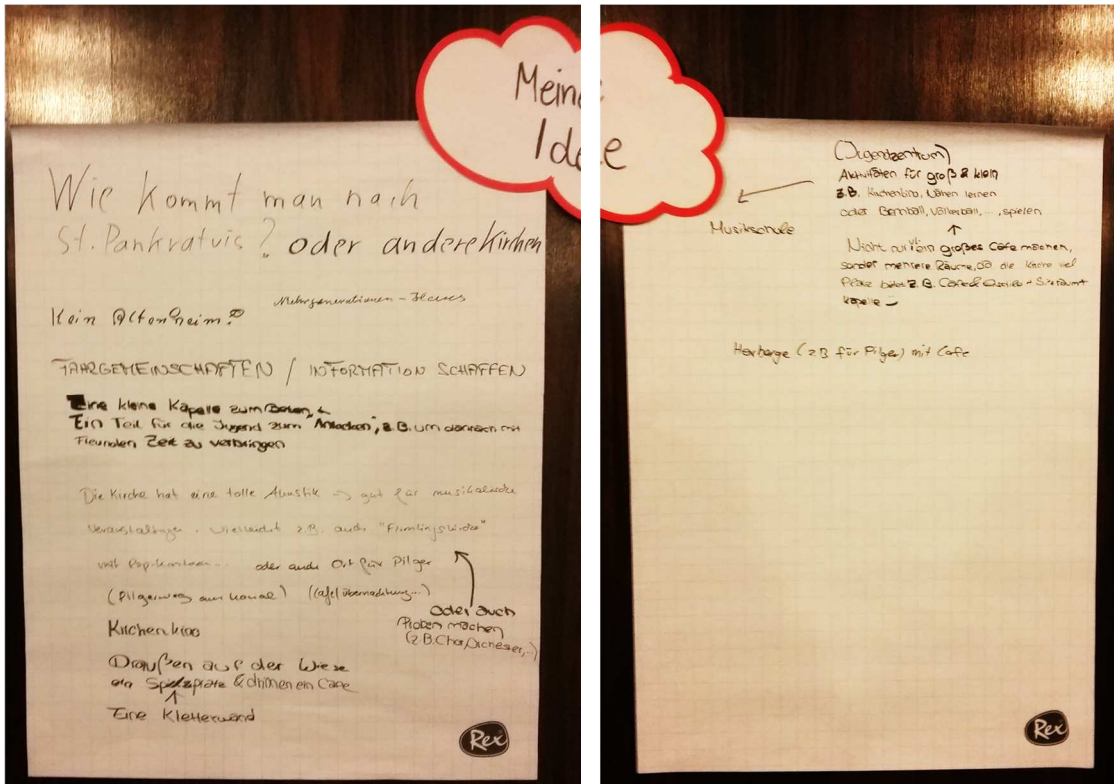 Meine
Idee
Wie kommt man nach
St. Pankratuis? oder andere Kirchen
Mehrgenerationen-Haus
Kein Altenheim?
FAHRGEMEINSCHAFTEN / INFORMATION SCHAFFEN
Eine kleine Kapelle zum Beten, &
Ein Teil für die Jugend zum "Anlocken", z.B. um danach mit
Freunden Zeit zu verbringen
Die Kirche hat eine tolle Akustik → gut für musikalische
Veranstaltungen. Vielleicht z.B. auch "Firmlingskirche"
mit Pop-Konzerten... oder auch Ort für Pilger
(Pilgerweg am Kanal) (Café/Übernachtung...)
Oder auch
Proben machen
(z.B. Chor, Orchester, ..)
Kirchenkino
Draußen auf der Wiese
ein Spielplatz & drinnen ein Cafe
Eine Kletterwand
Rex
(Jugendzentrum)
Aktivitäten für groß & klein
z.B. Kirchenkino, Nähen lernen
oder Brennball, Völkerball, ..., spielen
Musikschule
Nicht nur ein großes Cafe machen,
sonder mehrere Räume, da die Kirche viel
Platz bietet z.B. Cafe &
Kapelle
Herberge (z.B für Pilger) mit Cafe
Rex